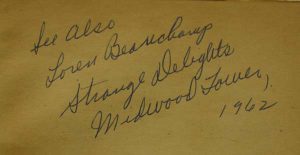 See Also
Loren Beauchamp
Strange Delights
Midwood Tower,
1962